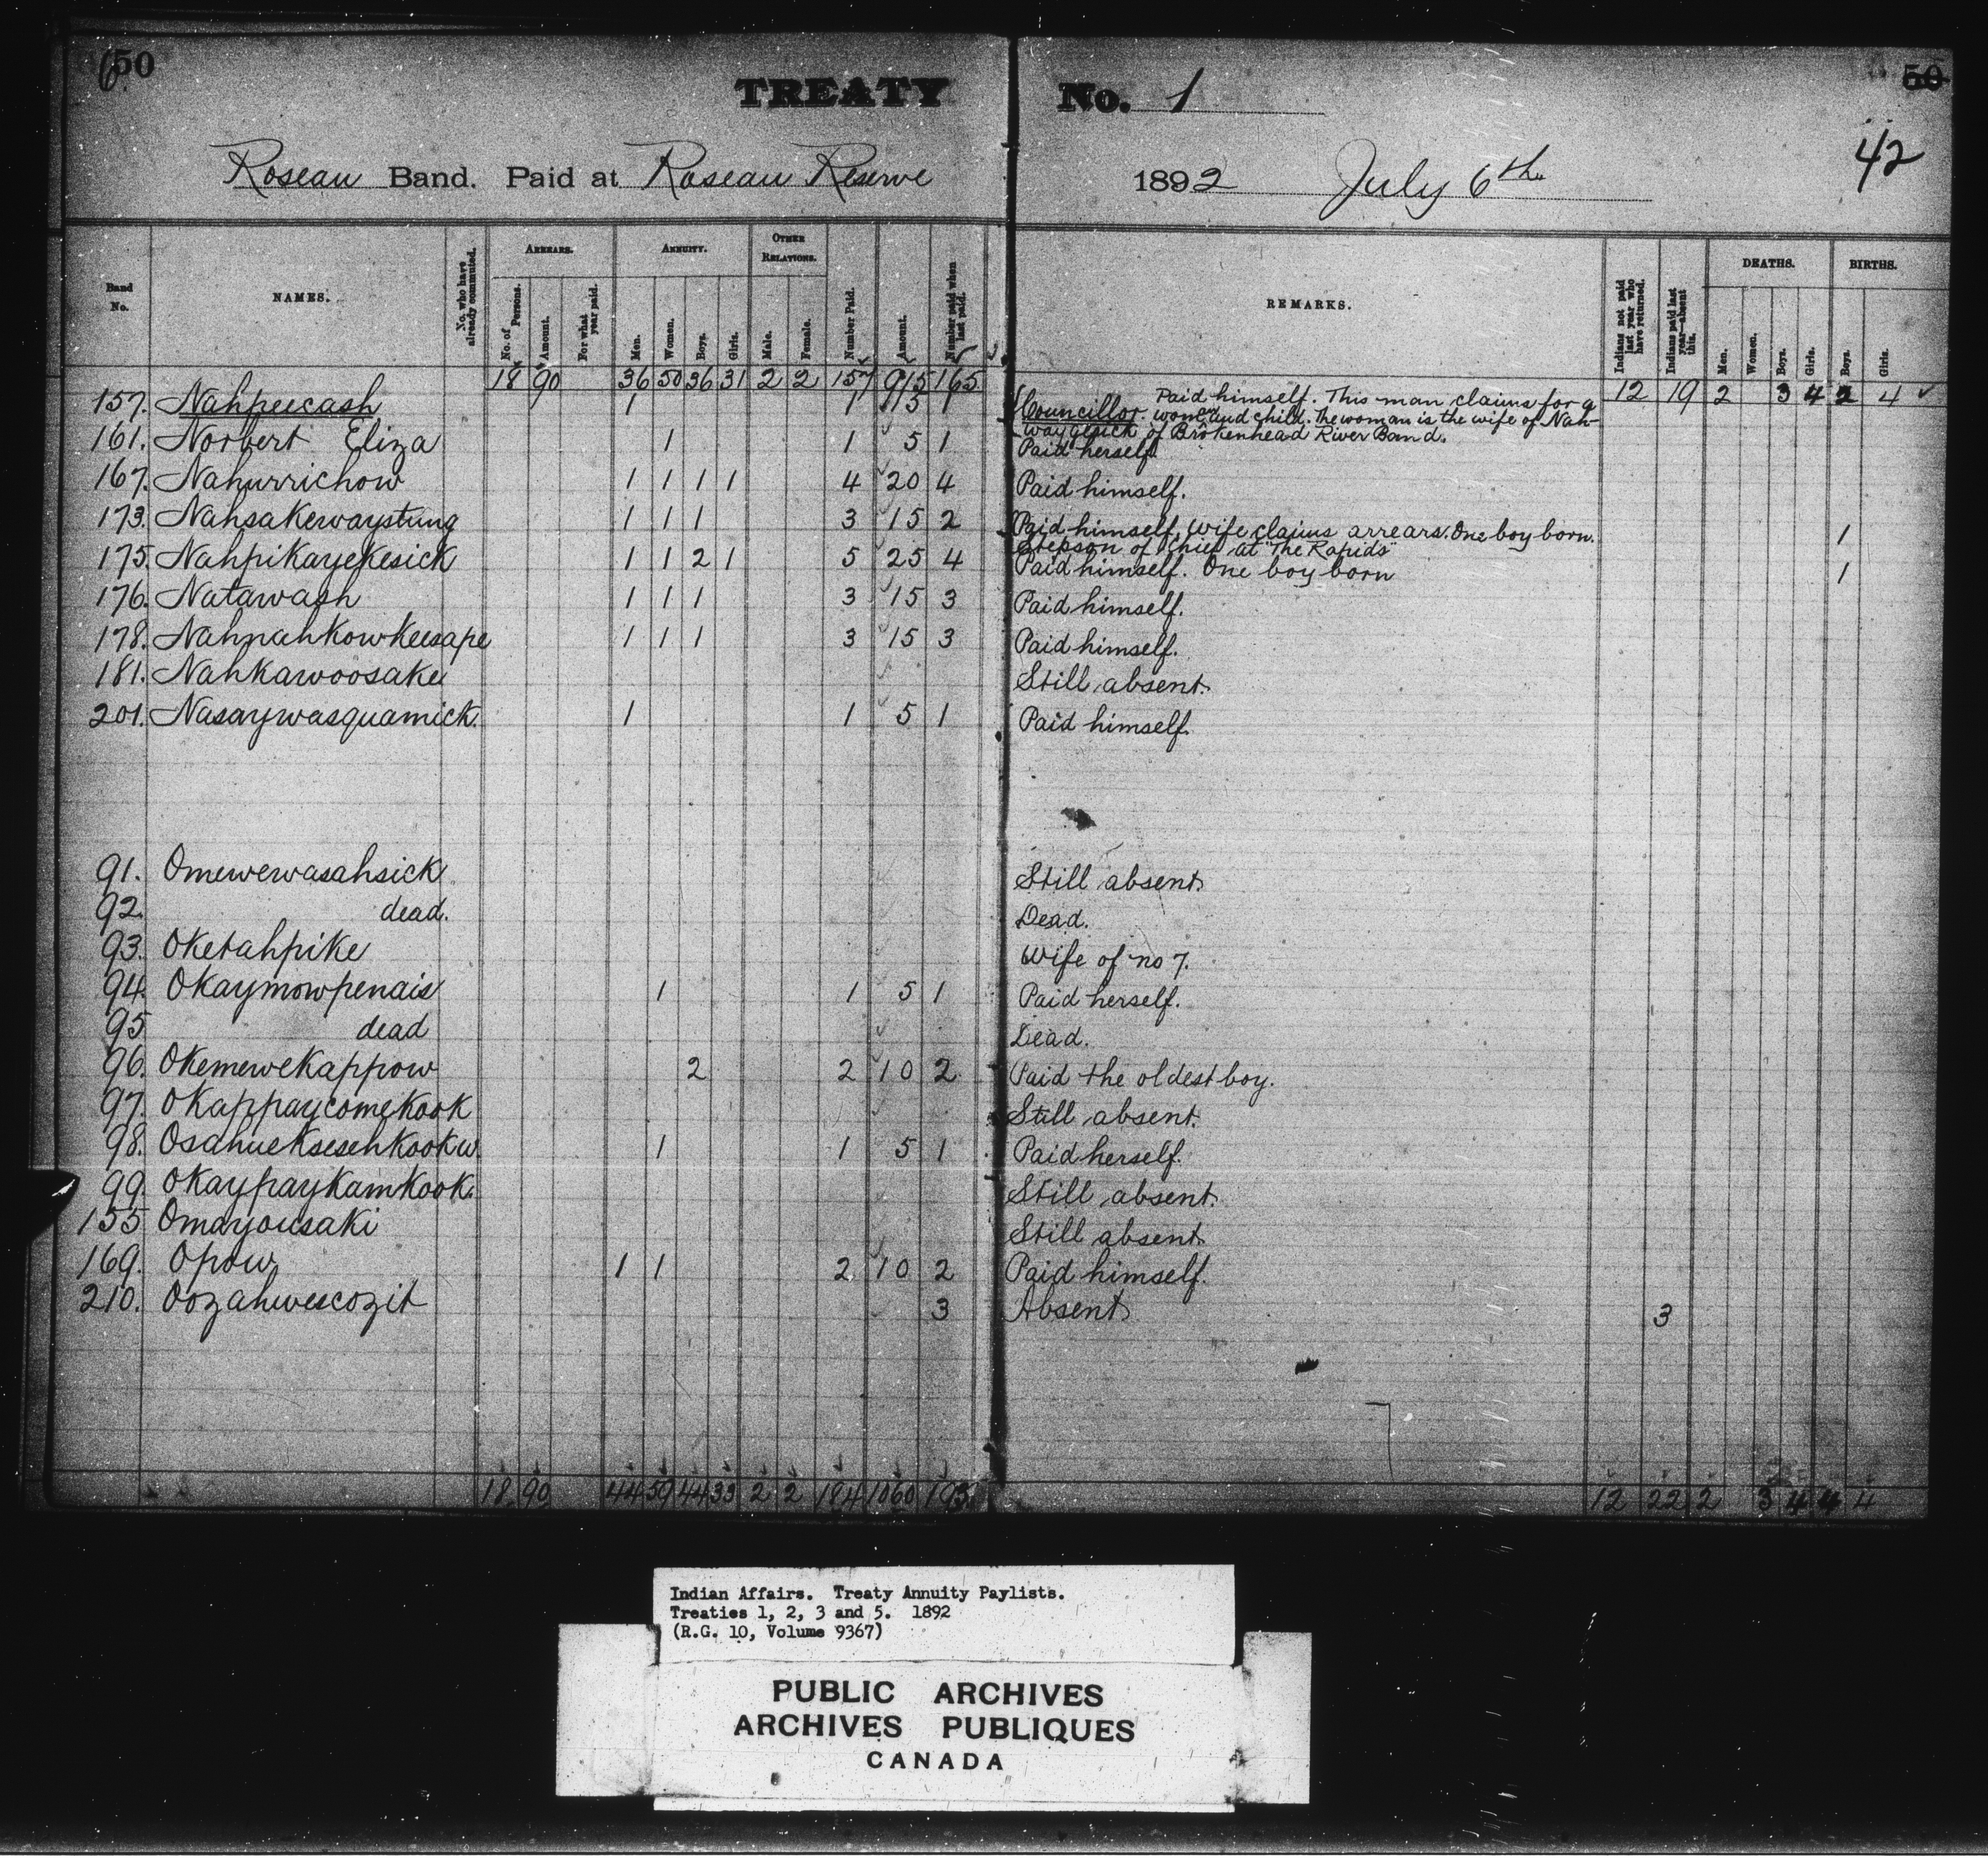 50
TREATY No. 1
50
42
Roseau Band. Paid at Roseau Reserve 1892 July 6th.
Band No.
NAMES.
No. who have already commuted.
ARREARS.
No. of Persons.
Amount.
For what year paid.
ANNUITY.
Men.
Women.
Boys.
Girls.
OTHER RELATIONS.
Male.
Female.
Number Paid.
Amount.
Number paid when last paid.
REMARKS.
Indians not paid last year who have returned.
Indians paid last year—absent this.
DEATHS.
Men.
Women.
Boys.
Girls.
BIRTHS.
Boys.
Girls.
18 90 36 50 36 31 2 2 157 915 165 12 19 2 3 4 2 4
157. Nahpeecash 1 1 5 1 Councillor. Paid himself. This man claims for a
woman and child. The woman is the wife of Nah-
waygesick of Brokenhead River Band.
161. Norbert Eliza 1 1 5 1 Paid herself.
167. Nahurrichow 1 1 1 1 4 20 4 Paid himself.
173. Nahsakewaystung 1 1 1 3 15 2 Paid himself, wife claims arrears. One boy born. 1
Stepson of Chief at "The Rapids"
175. Nahpikayekesick 1 1 2 1 5 25 4 Paid himself. One boy born 1
176. Natawash 1 1 1 3 15 3 Paid himself.
178. Nahnahkowkeesape 1 1 1 3 15 3 Paid himself.
181. Nahkawoosake Still absent.
201. Nasaywasquamick. 1 1 5 1 Paid himself.
91. Omewewasahsick Still absent.
92. dead. Dead.
93. Oketahpike Wife of no 7.
94. Okaymowpenais 1 1 5 1 Paid herself.
95 dead Dead.
96. Okemewekappow 2 2 10 2 Paid the oldest boy.
97. Okappaycomekook Still absent.
98. Osahueksesehkookw. 1 1 5 1 Paid herself.
99. Okaypaykamkook. Still absent.
155 Omayousaki Still absent.
169. Opow. 1 1 2 10 2 Paid himself.
210. Oozahwescozit 3 Absent 3
18 90 44 59 44 33 2 2 184 1060 193 12 22 2 3 4 4 4
Indian Affairs. Treaty Annuity Paylists.
Treaties 1, 2, 3 and 5. 1892
(R.G. 10, Volume 9367)
PUBLIC ARCHIVES
ARCHIVES PUBLIQUES
CANADA